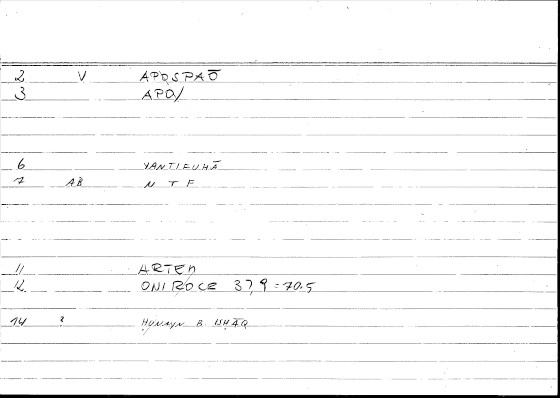 2 V APOSPAŌ
3 APO/
6 YANTIFUHĀ
7 AB N T F
11 ARTEM
12 ONIROCE 37,9 = 70.5
14 ? HUNAYN B. ISHĀQ